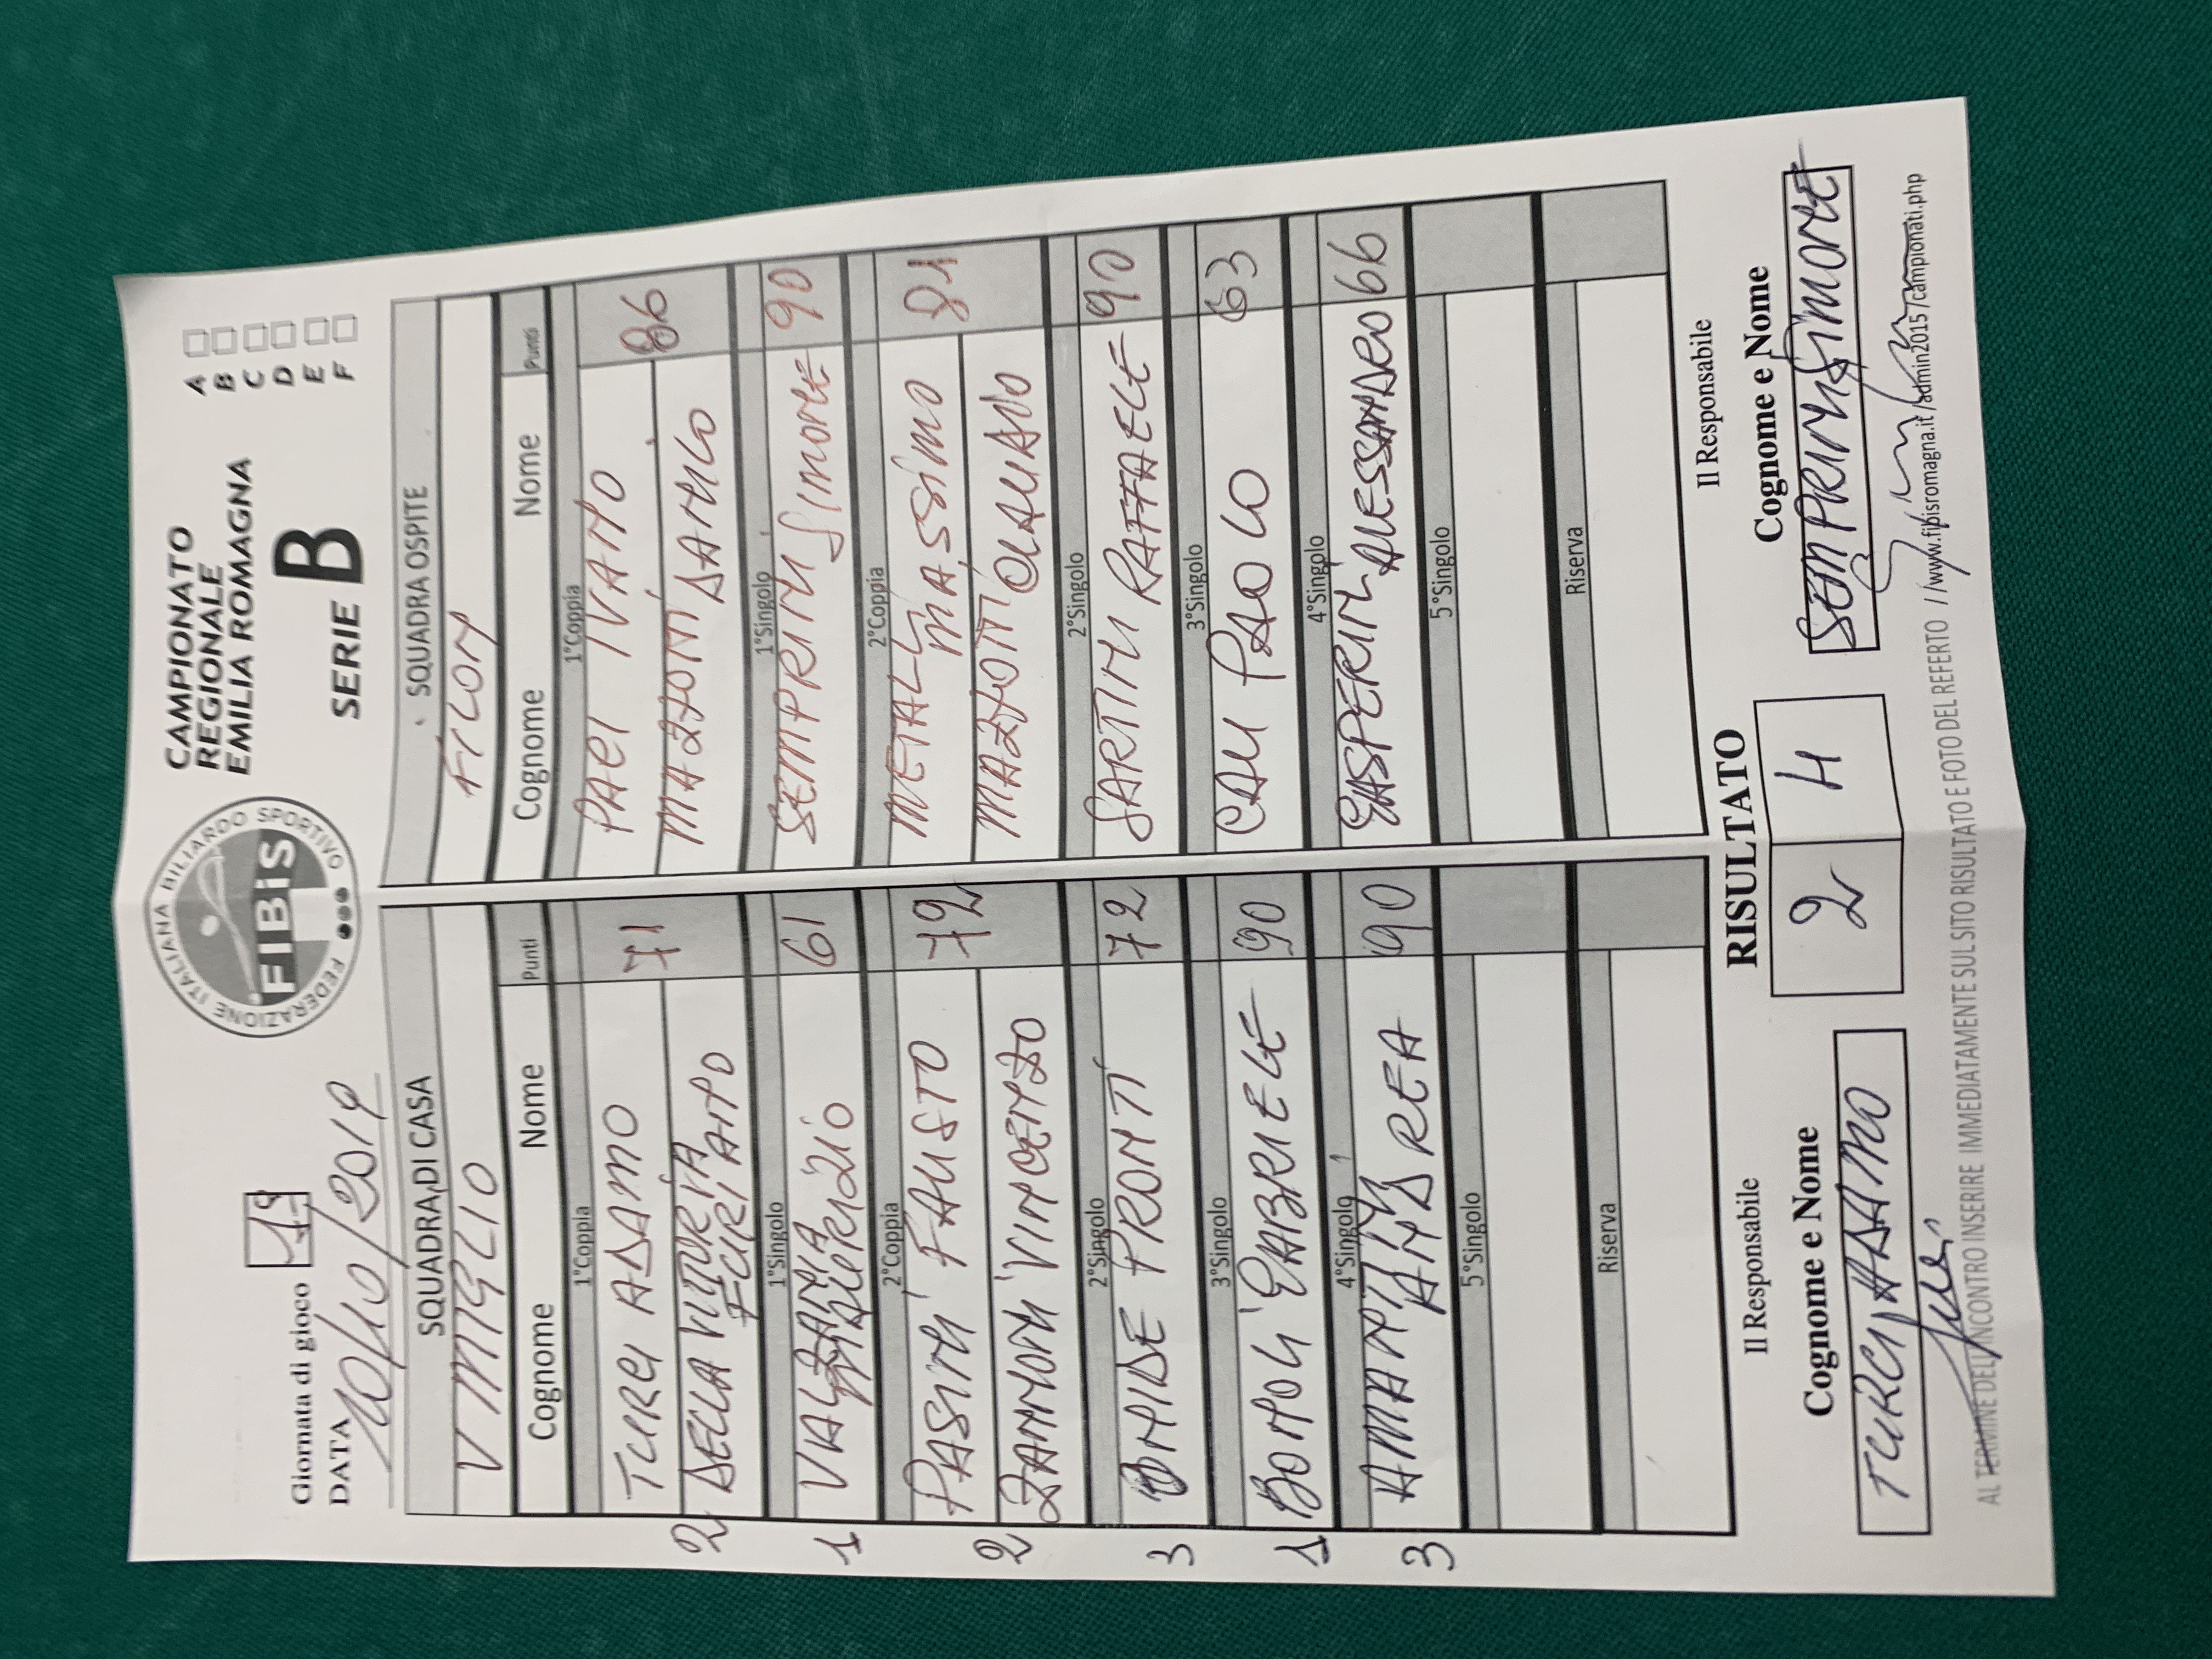 Giornata di gioco 1ª
DATA 10/10/2019
FEDERAZIONE ITALIANA BILIARDO SPORTIVO
FIBiS
CAMPIONATO
REGIONALE
EMILIA ROMAGNA
SERIE B
A
B
C
D
E
F
SQUADRA DI CASA
SQUADRA OSPITE
FILON
Cognome Nome Punti
Cognome Nome Punti
1°Coppia
TURCI ADAMO 71
DELLA VITTORIA
2
1°Singolo
VALZANIA
MAURIZIO 61
1
2°Coppia
PASINI FAUSTO 72
ZANNONI VINCENZO
2
2°Singolo
PRONTI 72
3
3°Singolo
BONOLI GABRIELE 90
1
4°Singolo
AMANTINI
ANDREA 90
3
5°Singolo
Riserva
1°Coppia
PACI IVANO 86
MAZZOTTI DANILO
1°Singolo
SEMPRINI SIMONE 90
2°Coppia
METALLI
MASSIMO 81
MAZZOTTI CLAUDIO
2°Singolo
SARTINI RAFFAELE 90
3°Singolo
PAOLO 63
4°Singolo
GASPERINI ALESSANDRO 66
5°Singolo
Riserva
Il Responsabile
RISULTATO
Il Responsabile
Cognome e Nome
2 4
Cognome e Nome
TURCI ADAMO
SEMPRINI SIMONE
AL TERMINE DELL'INCONTRO INSERIRE IMMEDIATAMENTE SUL SITO RISULTATO E FOTO DEL REFERTO //www.fibisromagna.it/admin2015/campionati.php